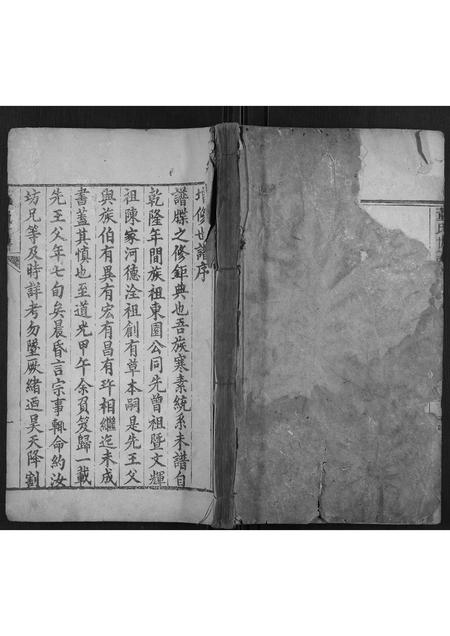 增修世譜序
譜牒之修鉅典也吾族寒素統系未譜自
乾隆年間族祖東園公同先曾祖暨文輝
祖陳家河德淦祖創有草本嗣是先王父
與族伯有異有宏有昌有玶相繼迄未成
書蓋其慎也至道光甲午余負笈歸一載
先王父年七旬矣晨昏言宗事輒命約汝
坊兄等及時詳考勿墜厥緒迺昊天降割